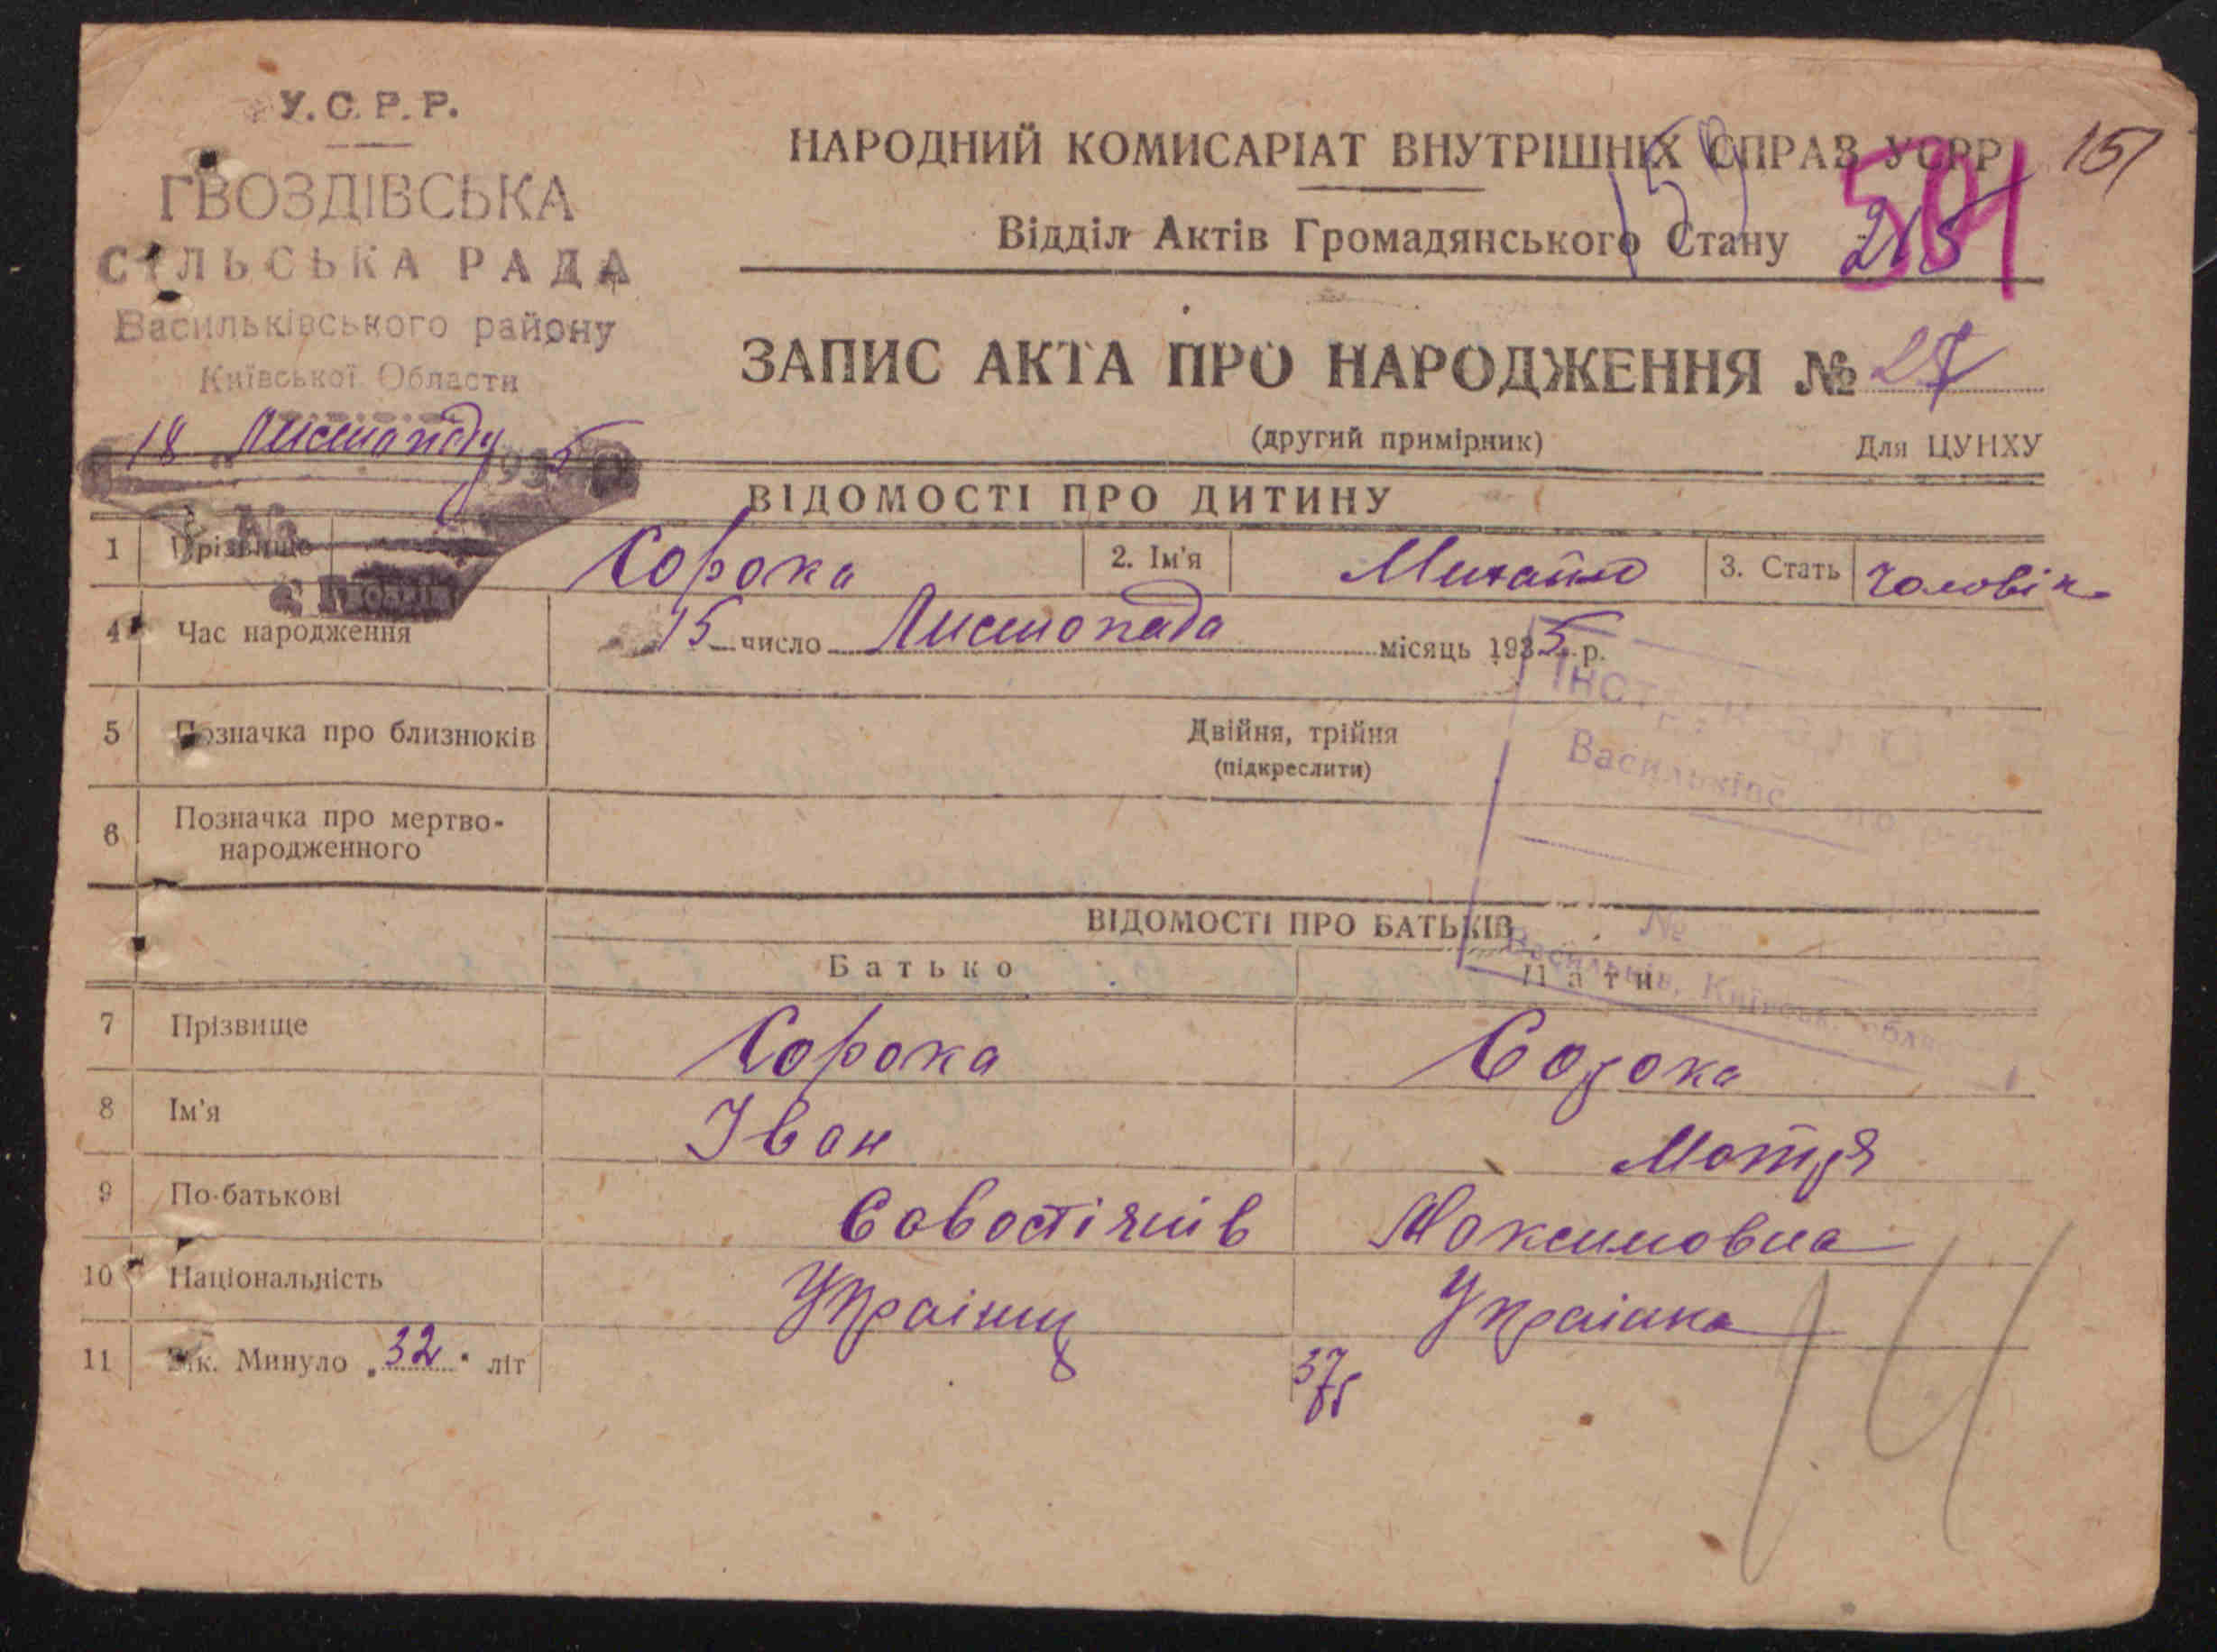 У.С.Р.Р.
ГВОЗДІВСЬКА
СІЛЬСЬКА РАДА
Васильківського району
Київської Области
18 Листопаду 1935
№
с. Гвоздів
НАРОДНИЙ КОМИСАРІАТ ВНУТРІШНІХ СПРАВ УСРР
151
Відділ Актів Громадянського Стану
501
215
ЗАПИС АКТА ПРО НАРОДЖЕННЯ № 27
(другий примірник)
Для ЦУНХУ
ВІДОМОСТІ ПРО ДИТИНУ
1 Прізвище Сорока 2. Ім'я Михайло 3. Стать Чоловік.
4 Час народження 15 число Листопада місяць 1935 р.
5 Позначка про близнюків Двійня, трійня
(підкреслити)
6 Позначка про мертво-
народженного
Васильківс
№
Васильків, Київськ. обл
ВІДОМОСТІ ПРО БАТЬКІВ
Батько Мати
7 Прізвище Сорока Сорока
8 Ім'я Іван Мотря
9 По-батькові Савостіянів Максимовна
10 Національність Українц Украінка
11 Вік. Минуло „32" літ 37